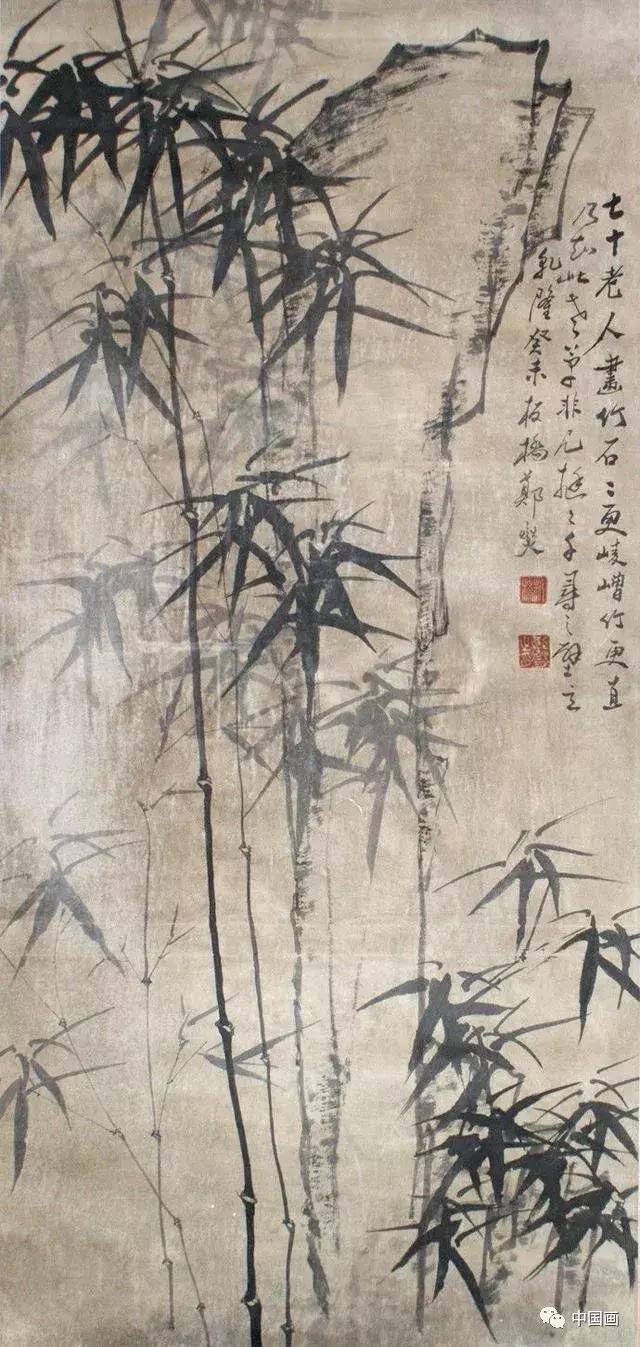 七十老人畫竹石〻更崚嶒竹更直
乃知此老筆非凡挺〻千尋之壁立
乾隆癸未板橋鄭燮
中国画